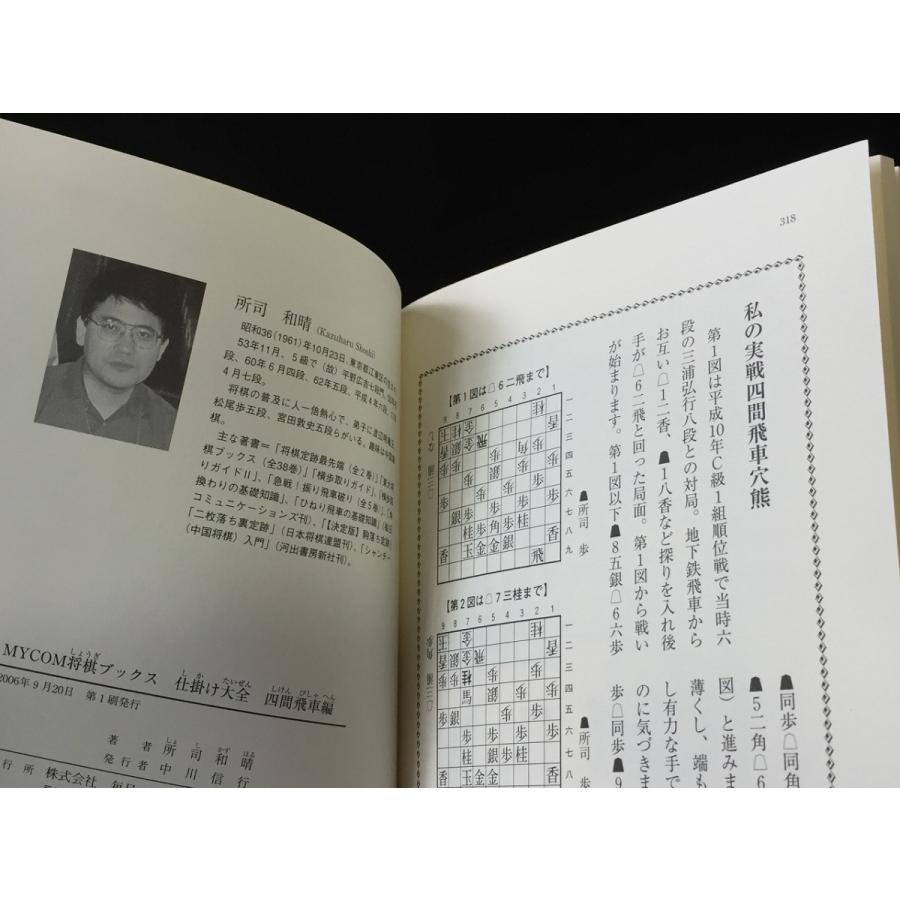 所司 和晴 (Kazuharu Shoshi)
昭和36(1961)年10月23日、東京都江東区の生まれ
53年11月、5級で(故)平野広吉七段門。
段、60年6月四段、62年五段、平成4年六段、
4月七段。
将棋の普及に人一倍熱心で、弟子に渡辺明竜王、
松尾歩五段、宮田敦史五段らがいる。趣味は中国象
棋。
主な著書=「将棋定跡最先端(全2巻)」「東大将
棋ブックス(全38巻)」「横歩取りガイド」、「横歩取
りガイドⅡ」、「急戦!振り飛車破り(全5巻)」、「角
換わりの基礎知識」、「ひねり飛車の基礎知識」(毎日
コミュニケーションズ刊)、「【決定版】駒落ち定跡」
「二枚落ち裏定跡」(日本将棋連盟刊)、「シャンチー
(中国将棋)入門」(河出書房新社刊)。
MYCOM将棋ブックス 仕掛け大全 四間飛車編
2006年9月20日 第1刷発行
著者 所司和晴
発行者 中川信行
行所 株式会社 毎日
318
私の実戦四間飛車穴熊
第1図は平成10年C級1組順位戦で当時六
段の三浦弘行八段との対局。地下鉄飛車から
お互い☖1二香、☗1八香など探りを入れ後
手が☖6二飛と回った局面。第1図から戦い
が始まります。第1図以下☗8五銀☖6六歩
☗同歩☖同角
☗5二角☖6
図)と進みま
薄くし、端も
し有力な手で
のに気づきま
歩☖同歩☗9
【第1図は☖6二飛まで】
9 8 7 6 5 4 3 2 1
一二三四五六七八九
☗所司 歩
☖三浦 なし
【第2図は☖7三桂まで】
9 8 7 6 5 4 3 2 1
一二三四五六七八
☗所司 歩
☖三浦 角歩